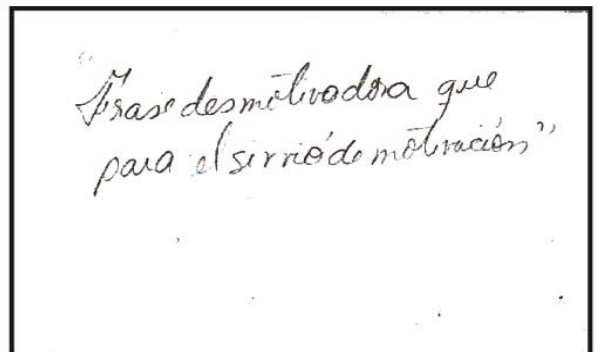 "Frase desmotivadora que
para el sirvió de motivación"